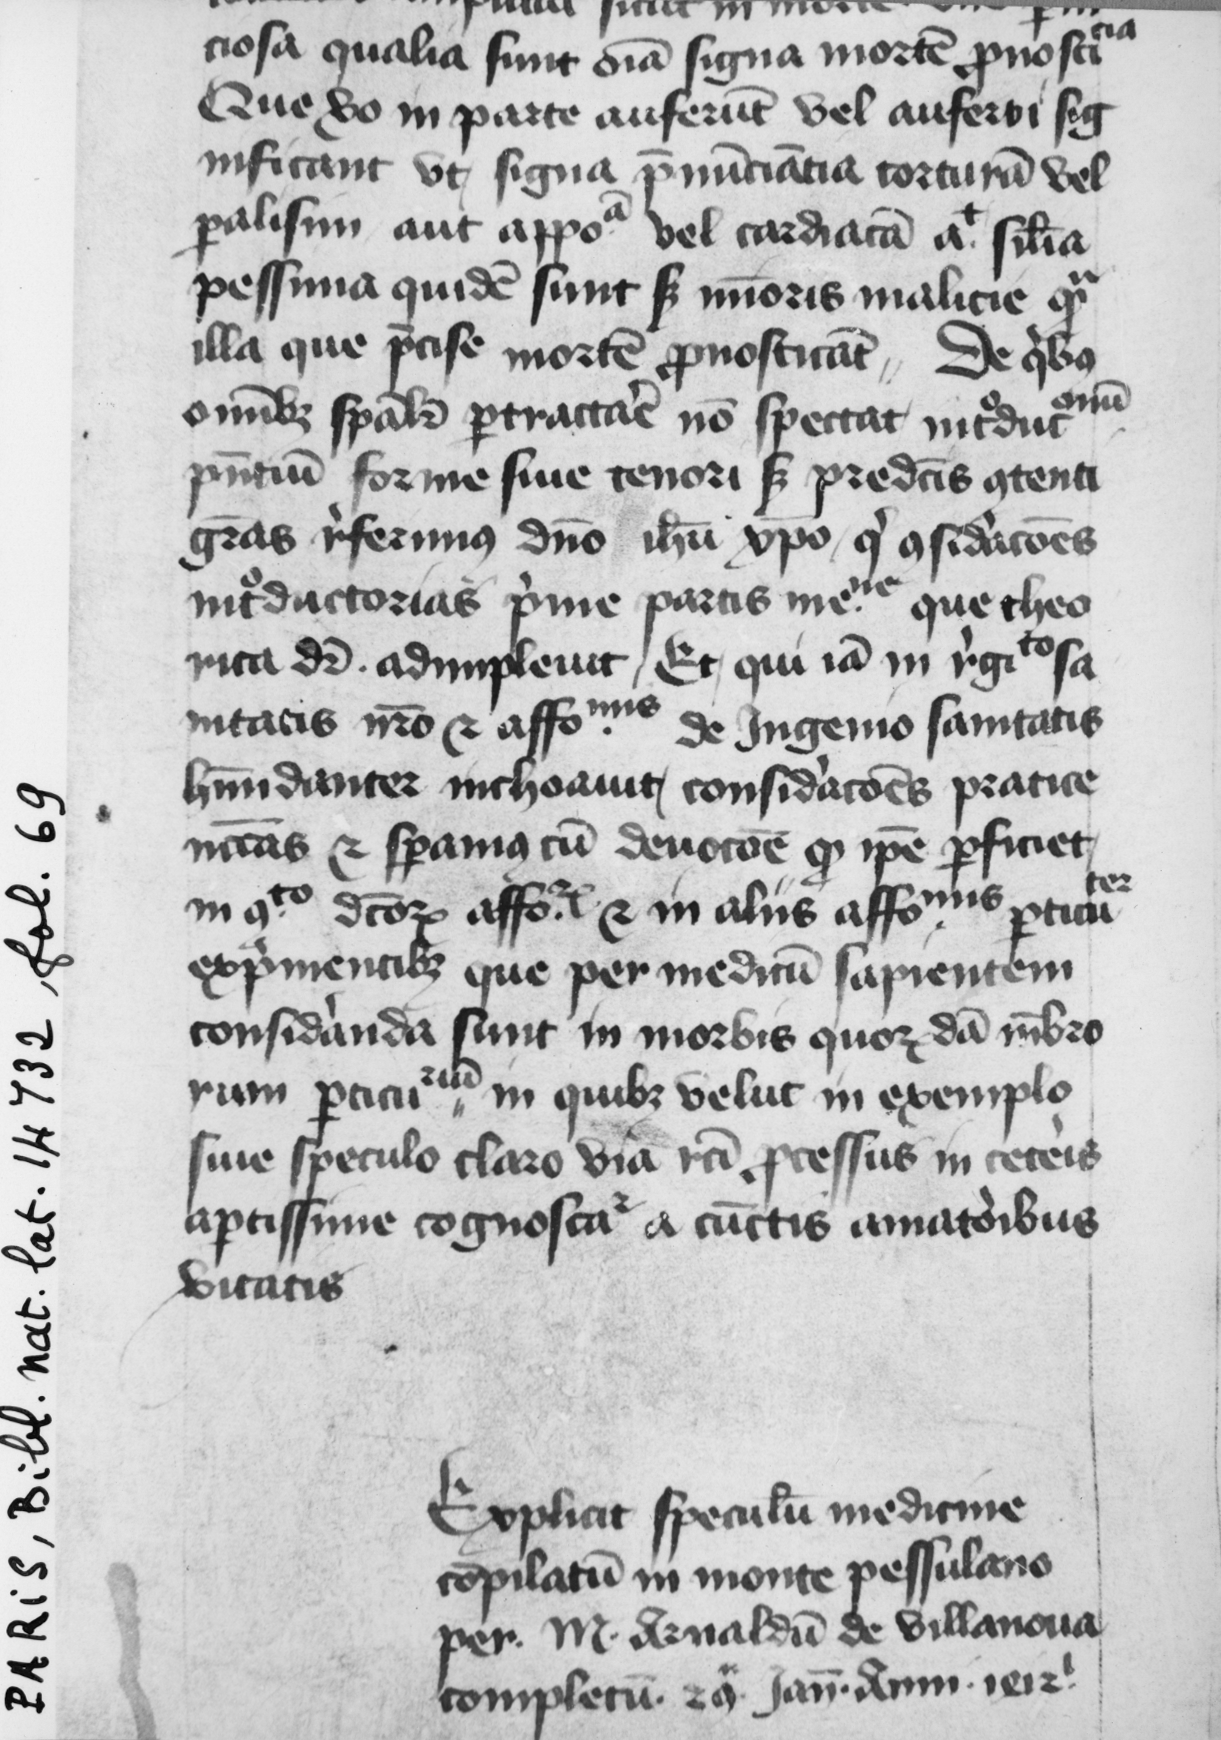 ciosa qualia sunt oīa signa mortē ꝓnosticia
Que vo in parte auferūt vel auferri sig
nificant ut signa p̄nūciātia torturā vel
ꝑalisim aut appoᵃ vel cardiacā aᵗ. sīlia
pessima quidē sunt sꝫ mīoris malicie qᵃ
illa que p̄cise mortē ꝓnosticāt De qⁱbꝰ
omībꝫ spālr̄ ꝑtractaͬe nō spectat intᵒductᵒⁿᵘ̄
pn̄tiū forme siue tenori sꝫ predcīs ꝯtenti
gr̄as rͤferimꝰ dn̄o ihū xp̄o qⁱ ꝯsidͤacōēs
intᵒductorias pⁱme partis meⁿᵉ que theo
rica dr̄. adimpleuit Et qui iā in rͤgiᵗᵒ sa
nitatis nr̄o ⁊ affoᵐⁱˢ de Ingenio sanitatis
inchoauit considͤacōēs pratice
⁊ spͤamꝰ cū deuocōē ip̄e ꝑficiet
in ꝯᵗᵒ dcōꝝ affoꝝ ⁊ in aliis affoᵐⁱˢ ꝑticuᵗᵉʳ
expⁱmentibꝫ que per medicū sapientem
considͤanda sunt in morbis quoꝝdā mēbro
rum ꝑticuʳⁱᵘ̄ in quibꝫ velut in exemplo
siue speculo claro viā rcī ꝓcessus in ceteͥis
aptissime cognoscaʳ a cūctis amatoͥibus
vͥitatis
Explicit speculū medicine
cōpilatū in monte pessulano
per. M. Arnaldū de villanoua
completū. Jan̄. Anni.
PARIS, Bibl. nat. lat. 14732, fol. 69